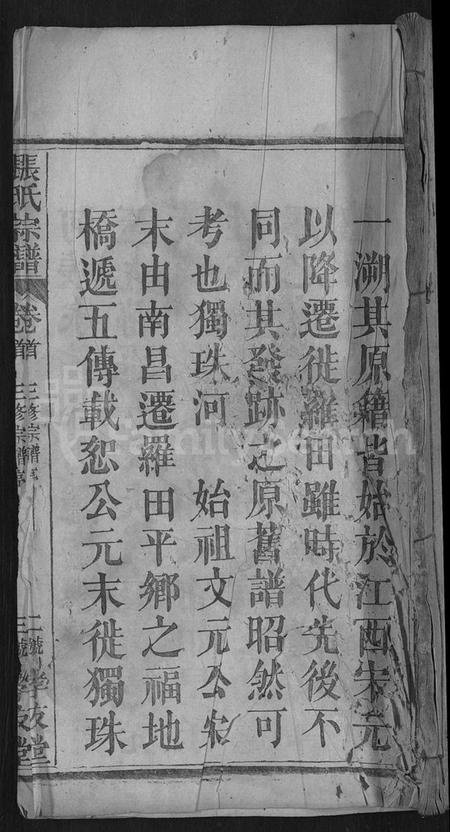 一溯其原籍皆始於江西宋元
以降遷徙羅田雖時代先後不
同而其發跡之原舊譜昭然可
考也獨珠河　始祖文元公宋
末由南昌遷羅田平鄉之福地
橋遞五傳載恕公元末徙獨珠
張氏宗譜
卷首首
三修宗譜
三修宗譜
二號
三號
孝友堂
FamilySearch